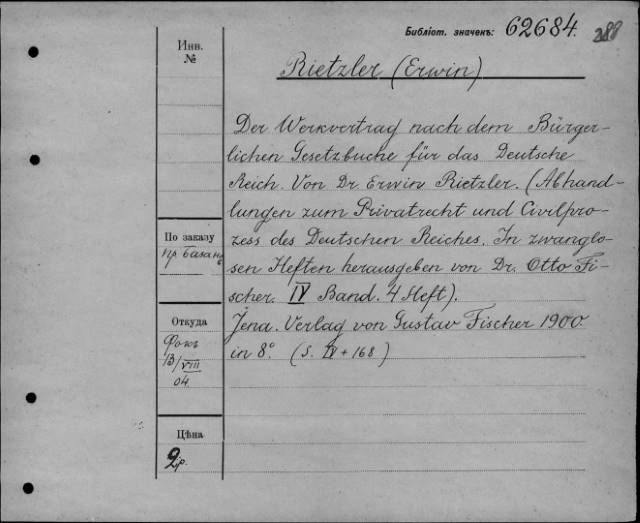 Библіот. значекъ: 62684. 388
Инв.
№
Rietzler (Erwin)
Der Werkvertrag nach dem Bürger-
lichen Gesetzbuche für das Deutsche
Reich. Von Dr. Erwin Rietzler. (Abhand-
lungen zum Privatrecht und Civilpro-
zess des Deutschen Reiches. In zwanglo-
sen Heften herausgeben von Dr. Otto Fi-
scher. IV Band. 4 Heft).
Jena. Verlag von Gustav Fischer 1900.
in 8°. (S. IV + 168)
По заказу
пр
Откуда
Фокъ
13/VIII
04.
Цѣна
2р.